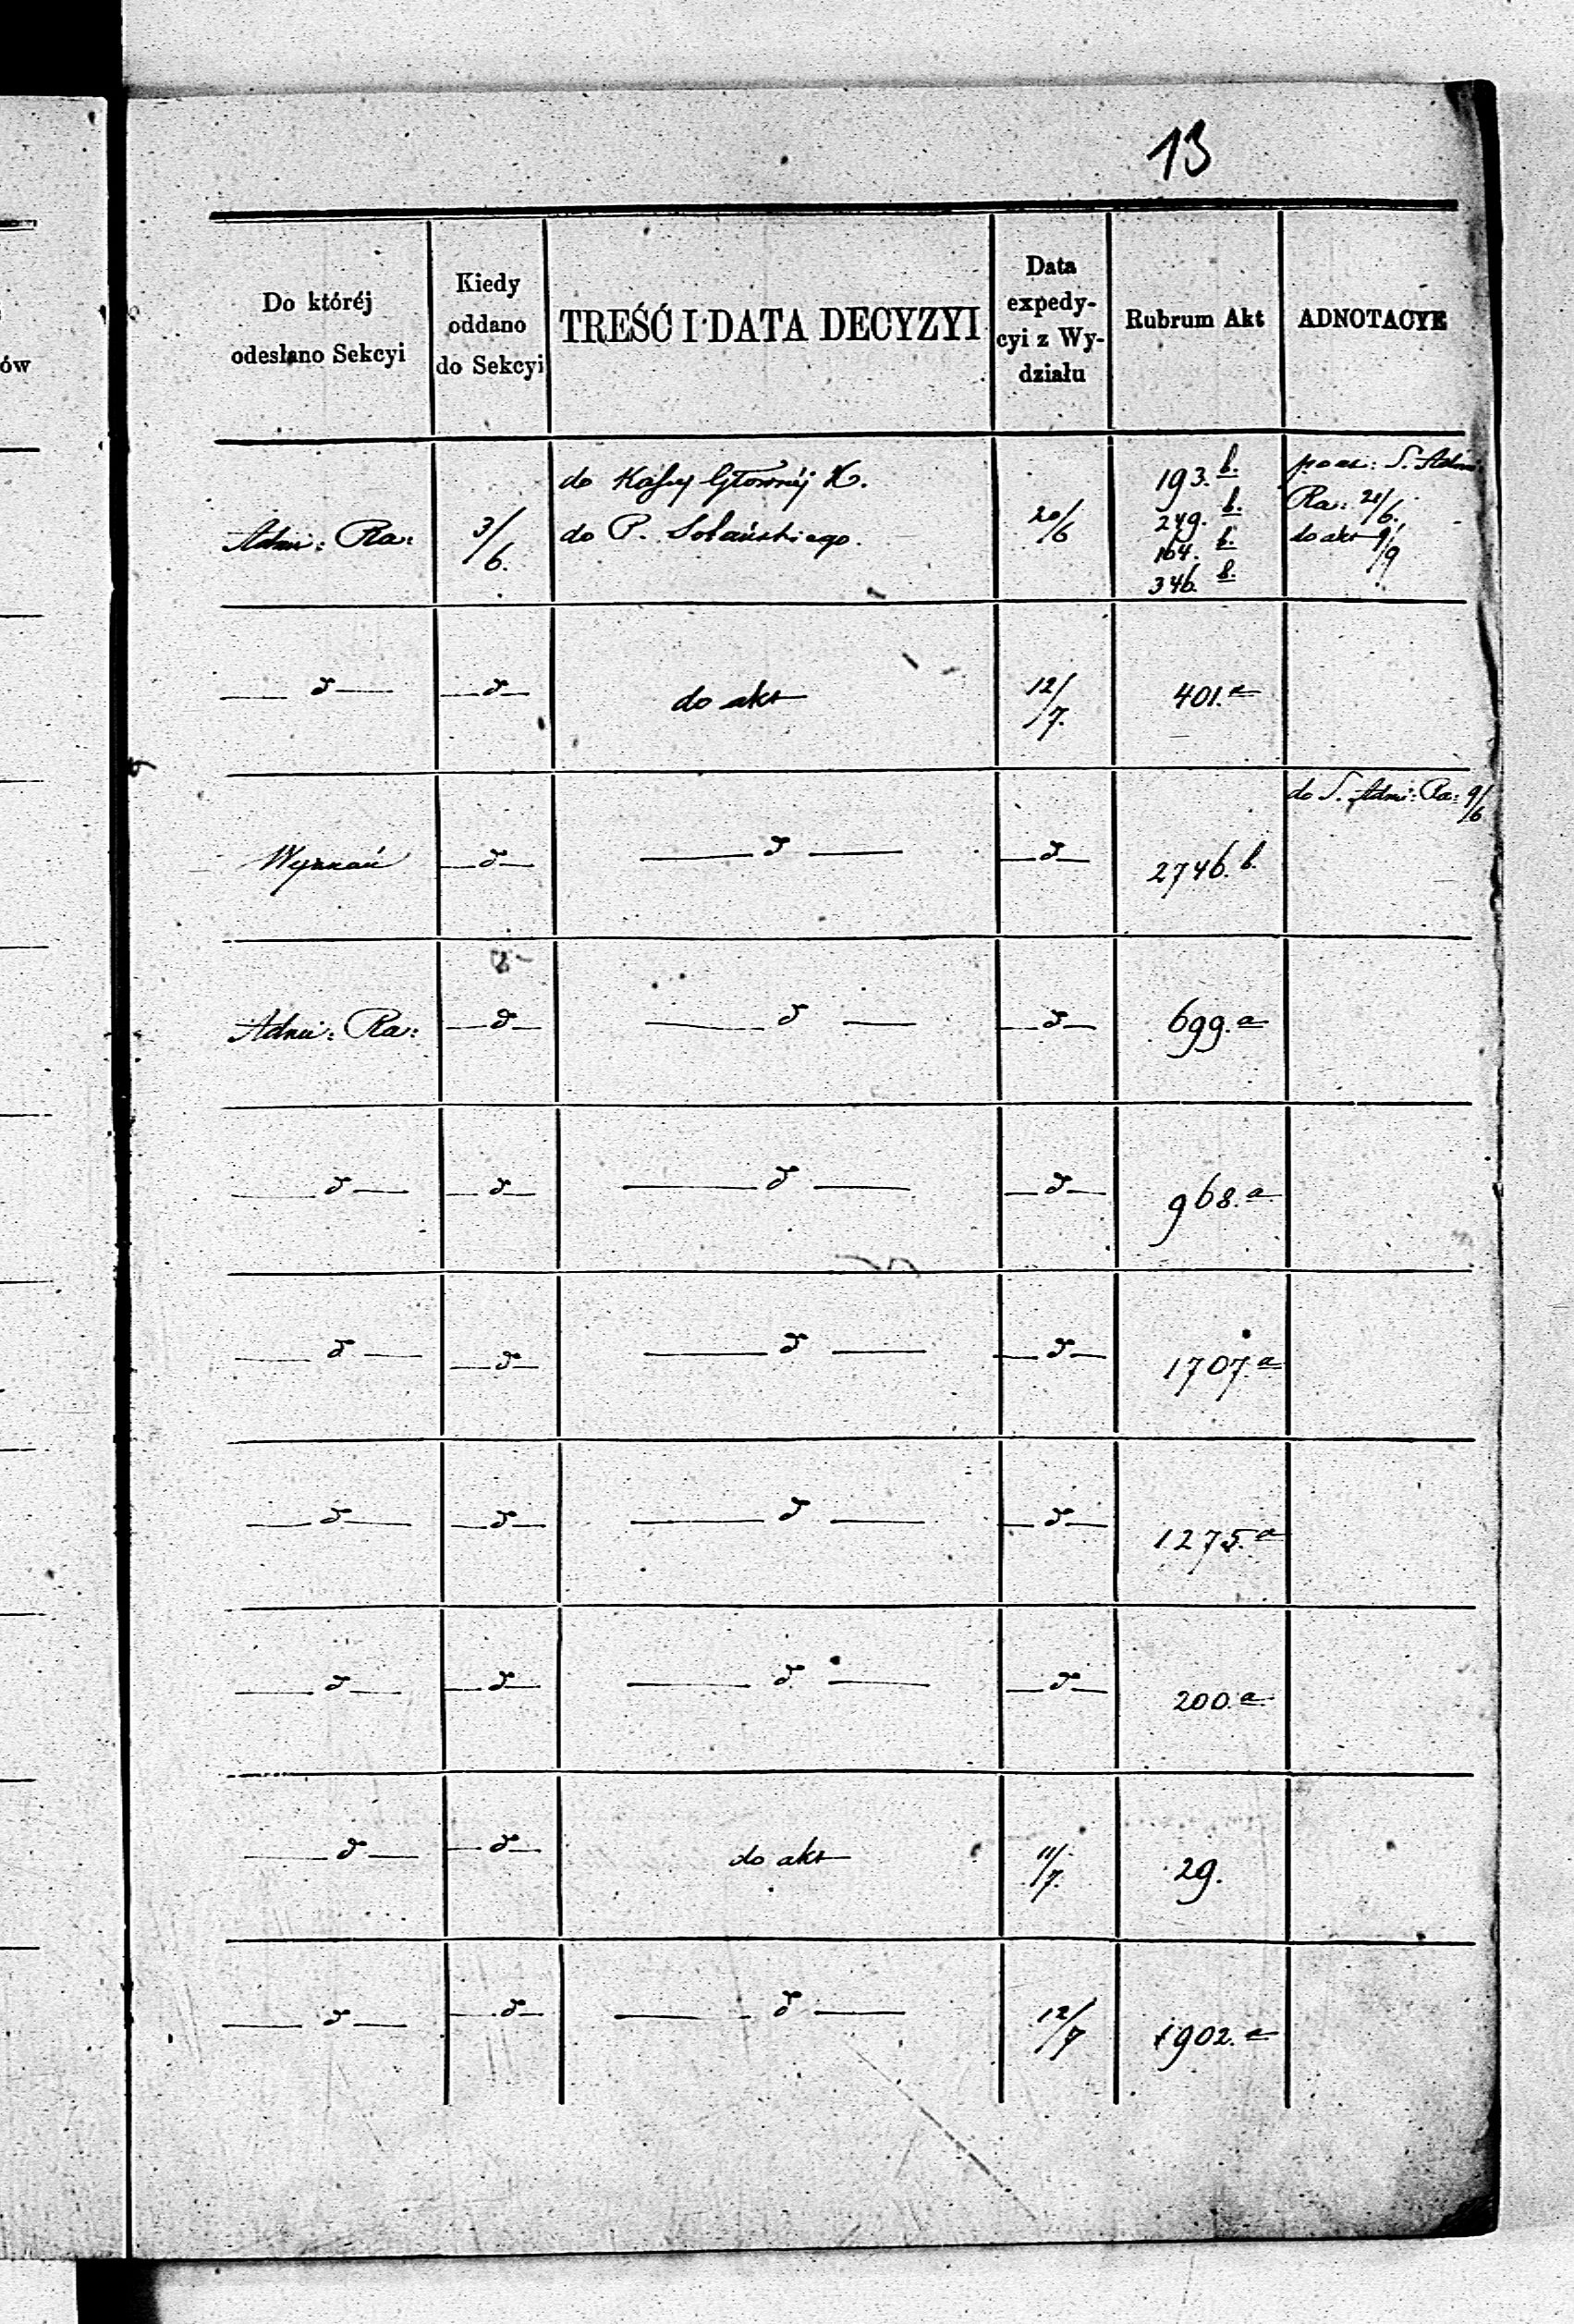 13
ów
Do któréj
odesłano Sekcyi
Kiedy
oddano
do Sekcyi
TREŚĆ I DATA DECYZYI
Data
expedy-
cyi z Wy-
działu
Rubrum Akt
ADNOTACYE
Adm: Ra:
3/6.
do Kassy Głównéj K.
do P. Solańskiego.
20/6
193. b.
249. b.
164. b.
346. b.
S. Adm:
Ra: 21/6.
do akt 9/9
— d — — d — do akt 12/7. 401. a
Wyznań — d — — d — — d — 2746. b. do S. Adm: Ra: 9/6
Adm: Ra: — d — — d — — d — 699. a
— d — — d — — d — — d — 968. a
— d — — d — — d — — d — 1707. a
— d — — d — — d — — d — 1275. a
— d — — d — — d — — d — 200. a
— d — — d — do akt 11/7. 29.
— d — — d — — d — 12/7 1902. a